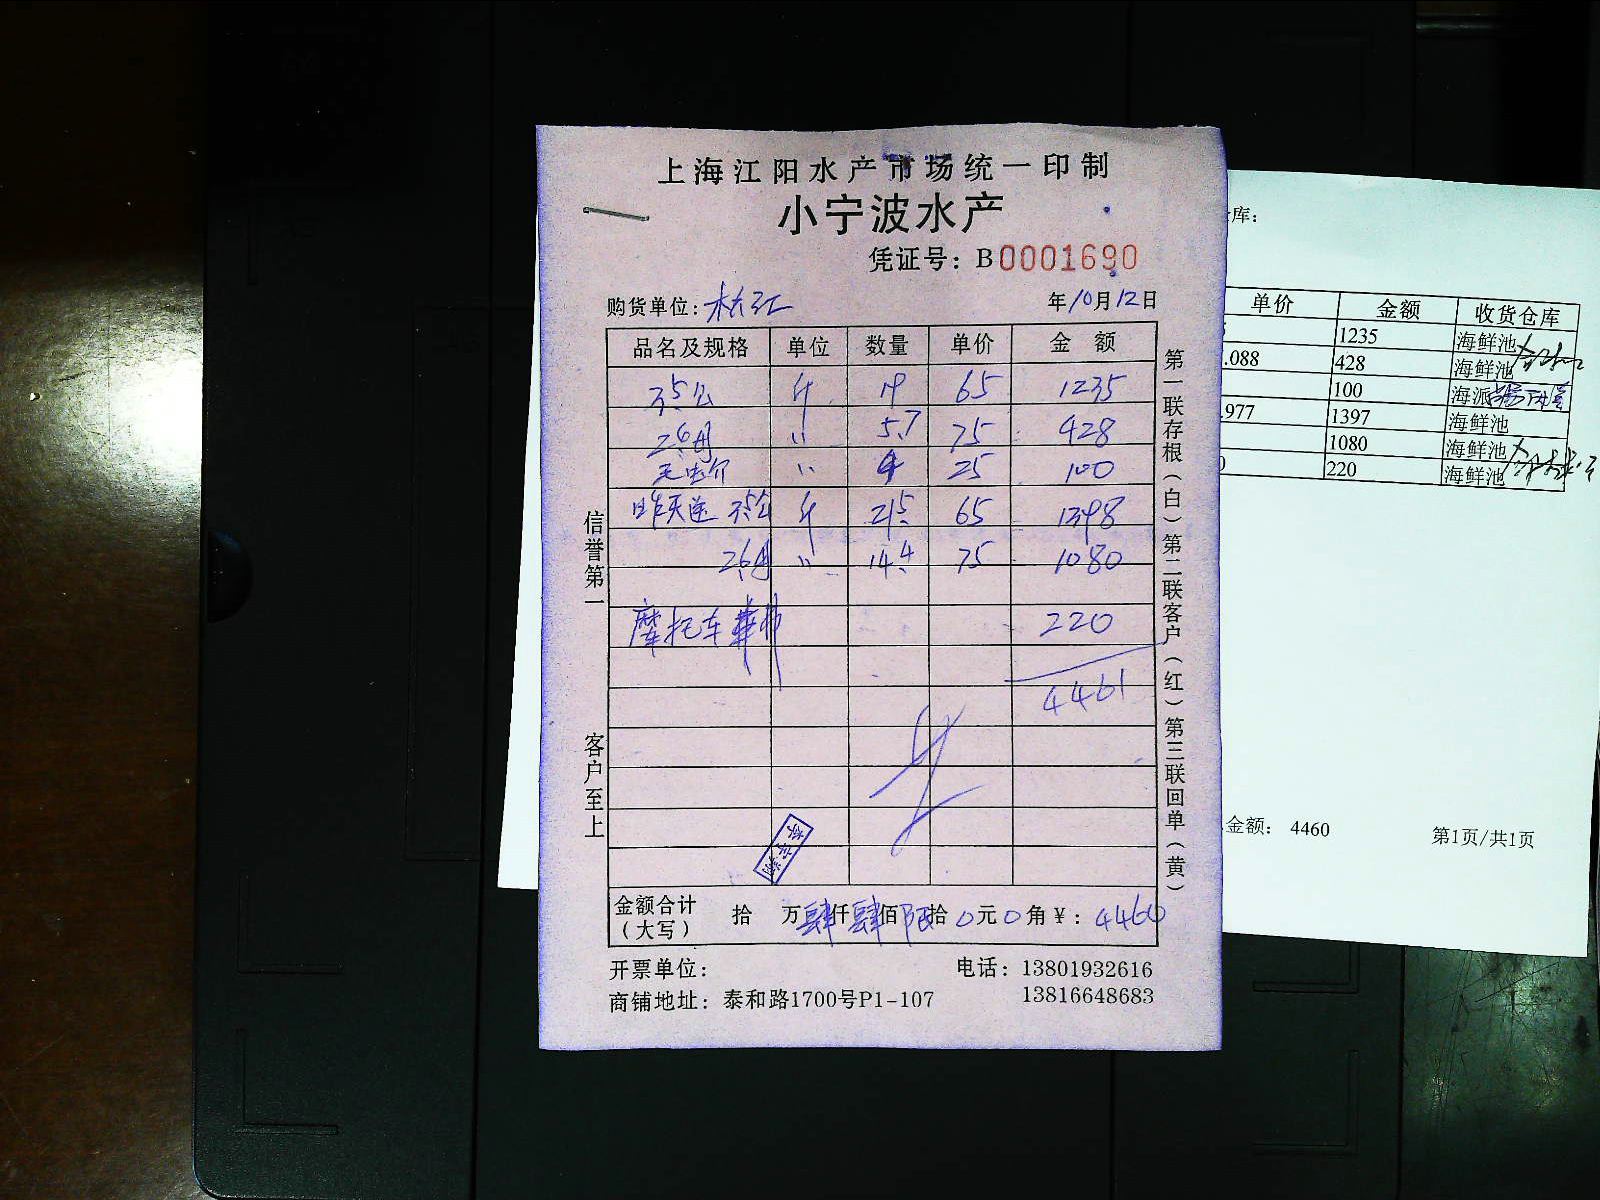 上海江阳水产市场统一印制
小宁波水产
凭证号：B0001690
购货单位：松江 年10月12日
品名及规格 单位 数量 单价 金额
3.5公 斤 19 65 1235
2.6母 〃 5.7 75 428
毛 〃 4 25 100
昨天送 3.5公 斤 21.5 65 1398
2.6母 〃 14.4 75 1080
摩托车 220
4461
金额合计（大写） 拾 万肆仟肆佰陆拾0元0角¥：4460
开票单位： 电话：13801932616
商铺地址：泰和路1700号P1-107 13816648683
信誉第一 客户至上
第一联存根（白）第二联客户（红）第三联回单（黄）
库：
单价 金额 收货仓库
1235 海鲜池
.088 428 海鲜池
100 海派
.977 1397 海鲜池
1080 海鲜池
0 220 海鲜池
金额： 4460 第1页/共1页